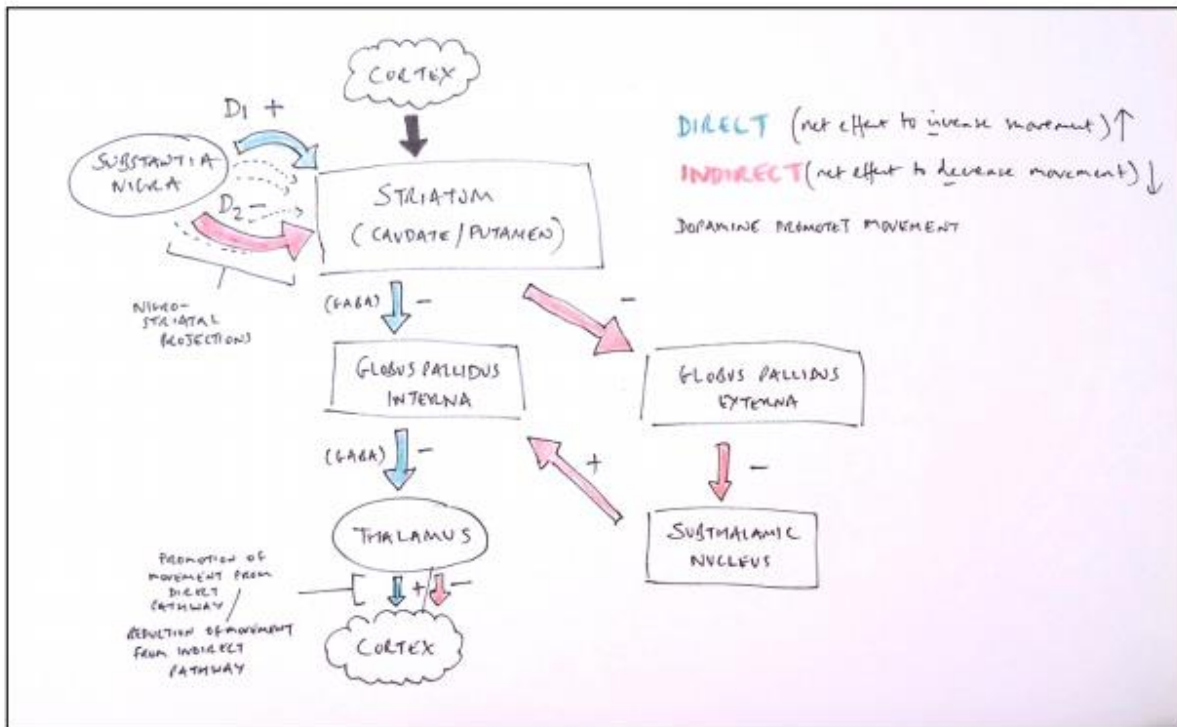 CORTEX
D1 +
SUBSTANTIA
NIGRA
D2 -
STRIATUM
(CAUDATE/PUTAMEN)
DIRECT (net effect to increase movement) ↑
INDIRECT (net effect to decrease movement) ↓
DOPAMINE PROMOTET MOVEMENT
NIGRO-
STRIATAL
PROJECTIONS
(GABA) -
-
GLOBUS PALLIDUS
INTERNA
GLOBUS PALLIDUS
EXTERNA
(GABA) -
+
-
THALAMUS
SUBTHALAMIC
NUCLEUS
PROMOTION OF
MOVEMENT FROM
DIRECT
PATHWAY
+ -
REDUCTION OF MOVEMENT
FROM INDIRECT
PATHWAY
CORTEX